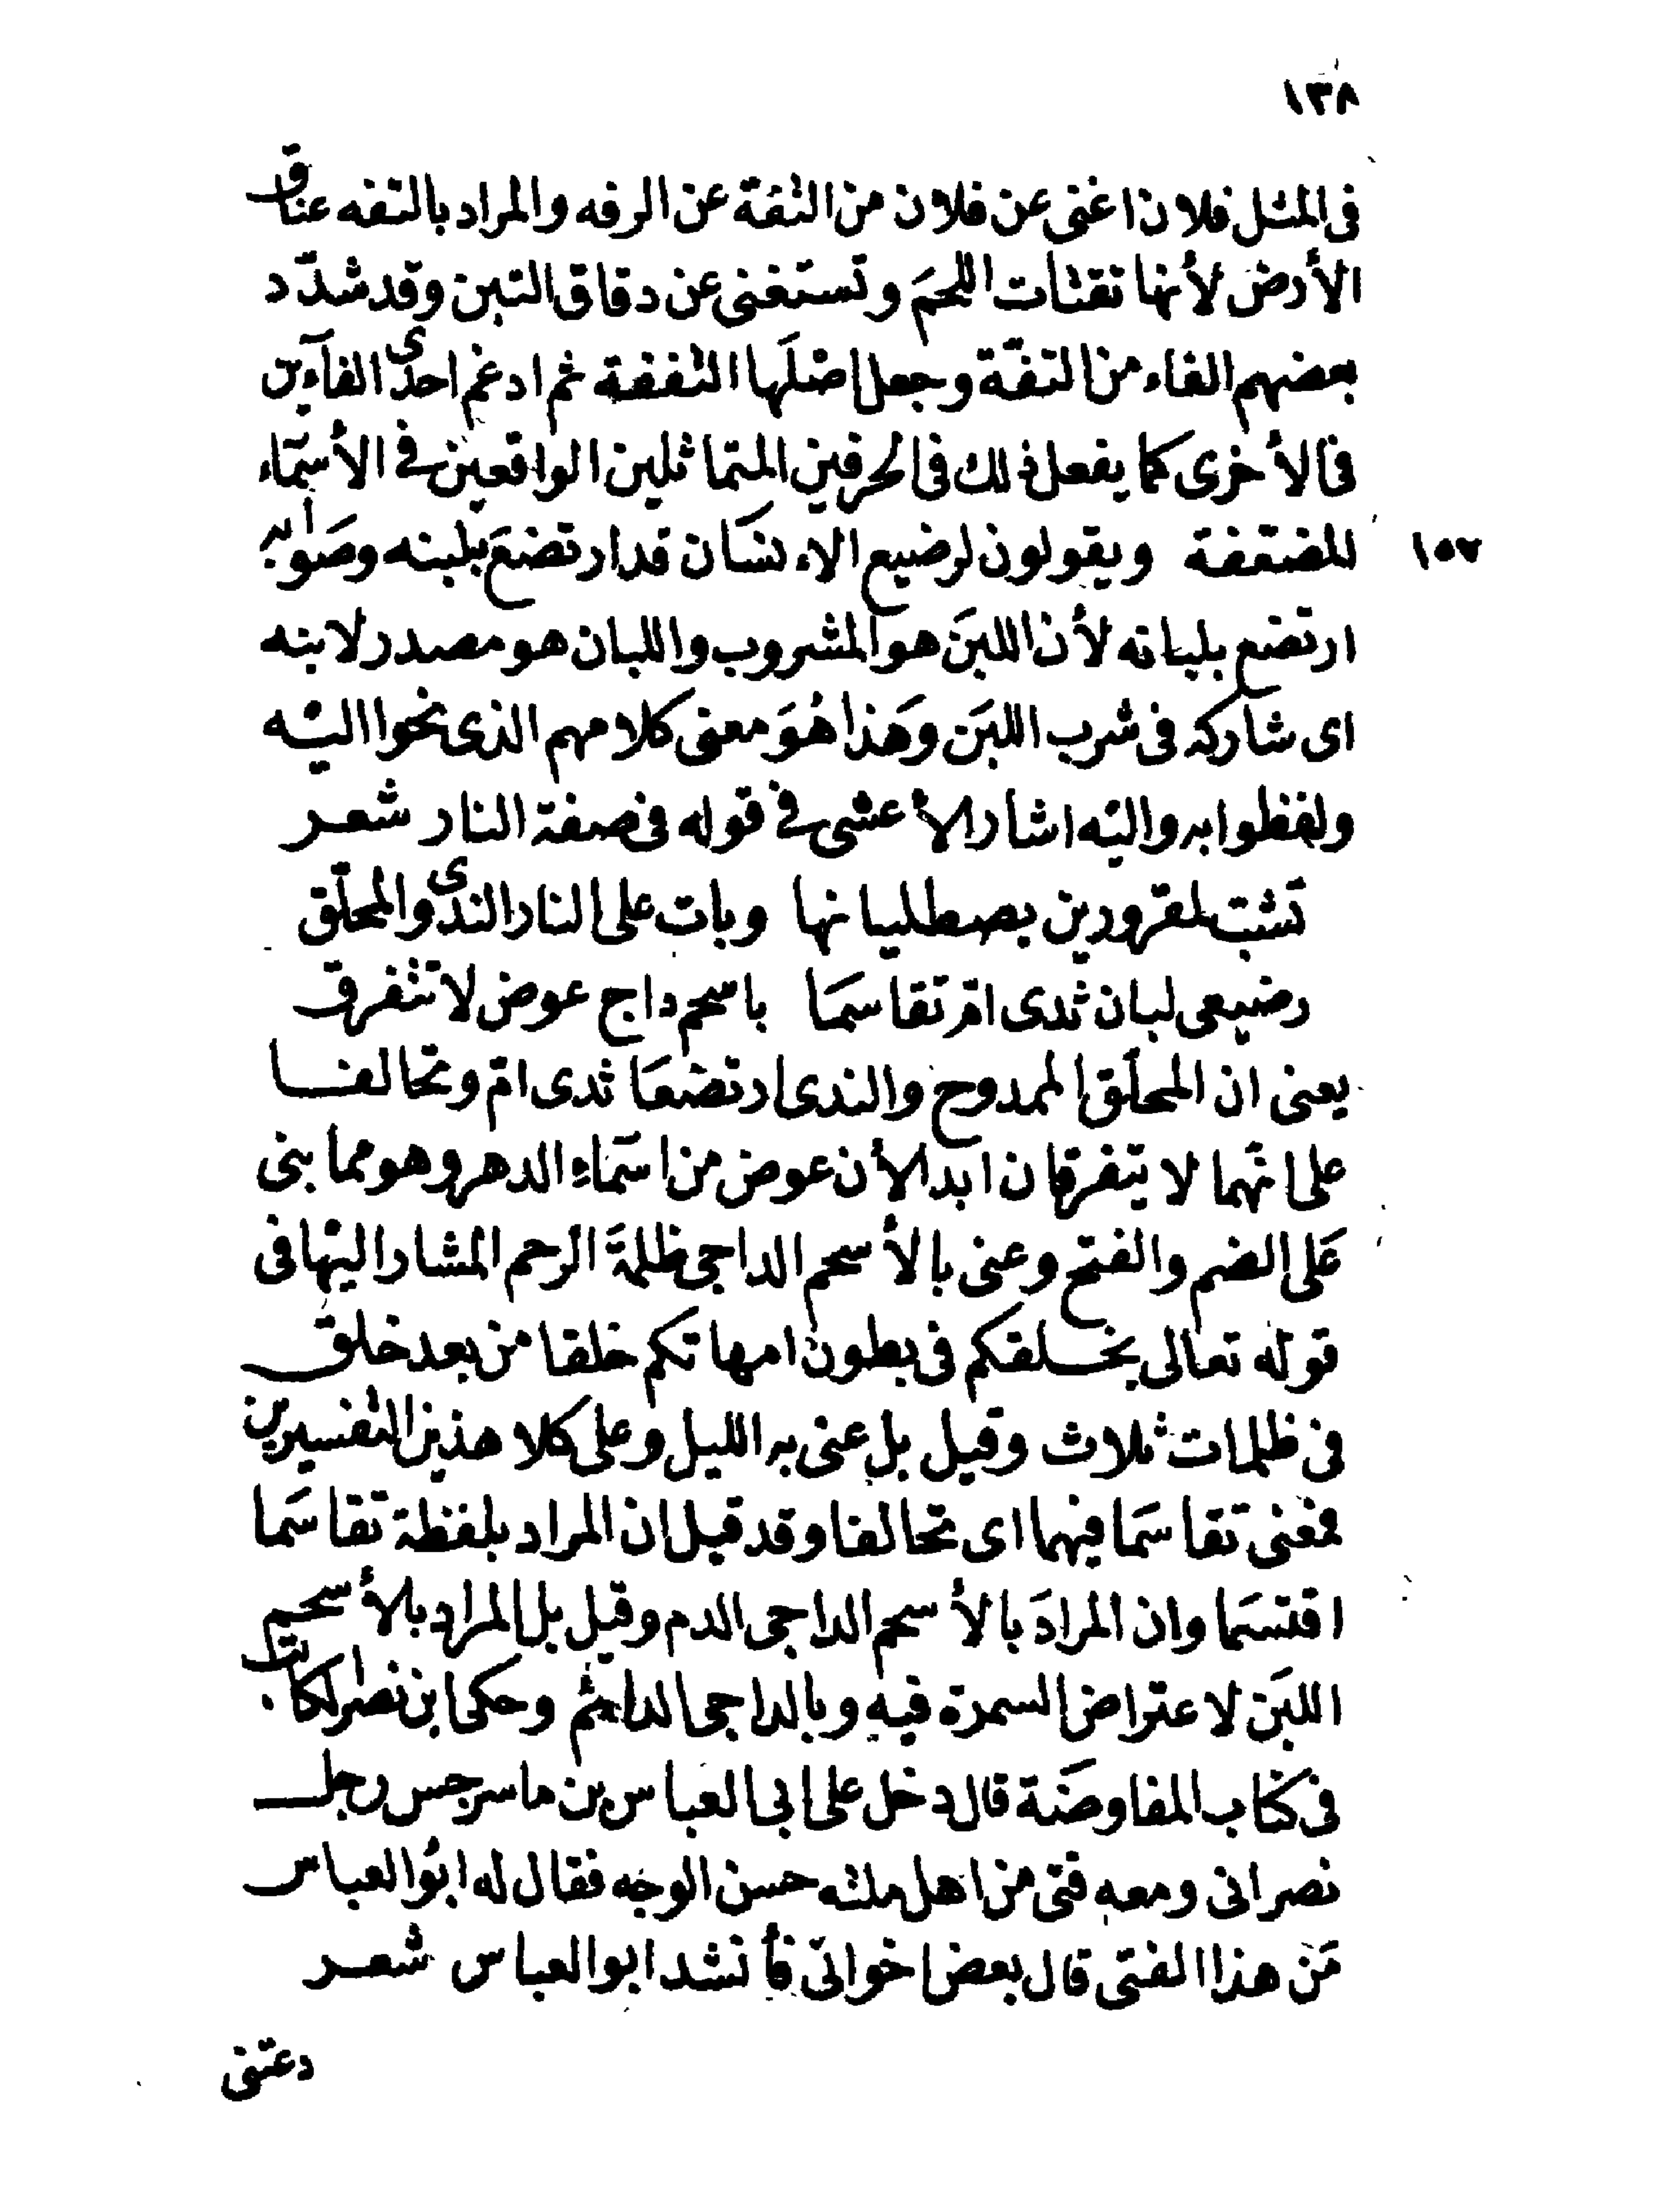 ١٣٨
فى المثل فلان اغنى عن فلان من التفة عن الرفه والمراد بالتفه عناق
الأرض لأنها تقتات اللحمَ وتستغنى عن دقاق التبن وقد شدّد
بعضهم الفاء من التفّة وجعل اصْلَها التففة ثم ادغم احدى الفآءين
فى الأخرى كما يفعل ذلك فى الحرفين المتماثلين الواقعين فى الأسمآء
١٥٧ المضعّفة ويقولون لرضيع الإنسَان قد ارتضعَ بلبنه وصَوابه
ارتضع بلبانه لأن اللبَن هو المشروب واللبان هو مصدر لابنه
اى شاركه فى شرب اللبَن وَهَذا هُوَ معنى كلامهم الذى نحوا اليْه
ولفظوا به واليْه اشار الأعشى فى قوله فى صفة النار شعر
تَشبّ لمقرورين يصطليانها وبات على النار الندى والمحلّق
رضيعى لبان ثدى امّ تقاسمَا باسحم داج عوض لا تتفرق
يعنى ان المحلّق الممدوح والندى ارتضعَا ثدى امّ وتحالفا
على انهما لا يتفرقان ابدا لأن عوض من اسمَاء الدهر وهو مما بنى
عَلى الضم والفتح وعنى بالأسحم الداجى ظلمةَ الرحم المشار اليْها فى
قوله تعالى يخلقكم فى بطون امهاتكم خلقا من بعد خلق
فى ظلمات ثلاث وقيل بل عنى به الليل وعلى كلا هذين التفسيرين
فمعنى تقاسَما فيهما اى تحالفا وقد قيل ان المراد بلفظة تقاسَما
اقتسَما وان المرادَ بالأسحم الداجى الدم وقيل بل المراد بالأسحم
اللبَن لاعتراض السمرة فيه وبالداجى الدائم وحكى ابن نصر الكاتب
فى كتاب المفاوضَة قال دخل على ابى العباس بن ماسرجس رجل
نصرانى ومعه فتى من اهل ملته حسن الوجه فقال له ابوُ العباس
مَن هذا الفتى قال بعض اخوانّى فأنشد ابو العباس شعر
دعتنى